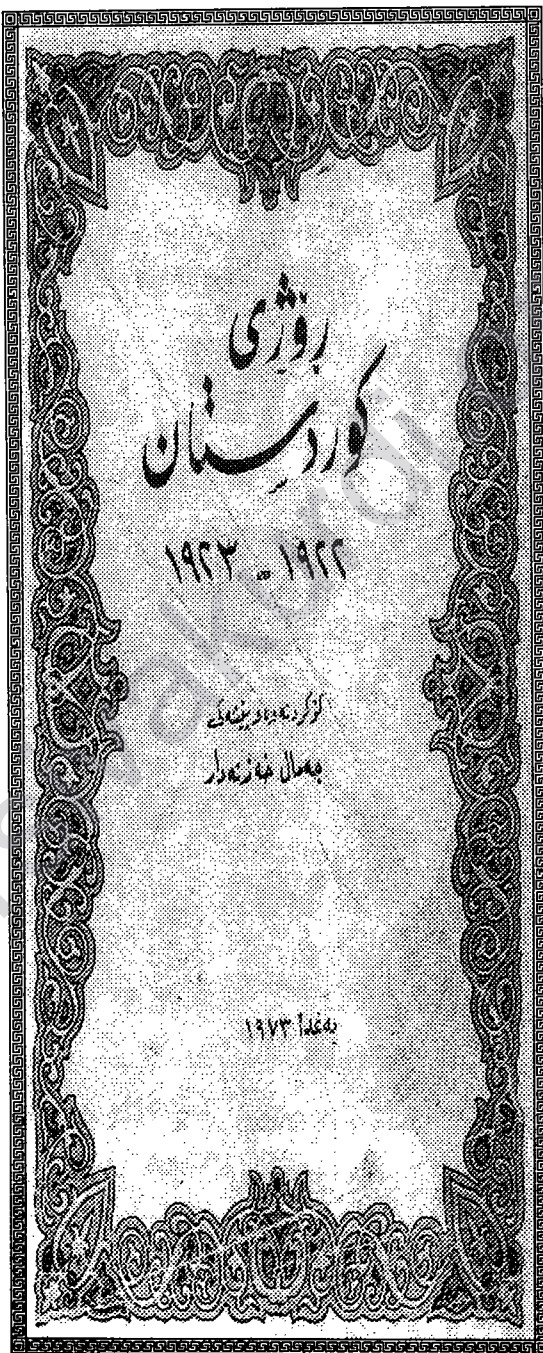 رۆژی
کوردستان
١٩٢٢ - ١٩٢٣
کۆکردنەوەو پێشەکی
جەمال خەزنەدار
بەغدا ١٩٧٣